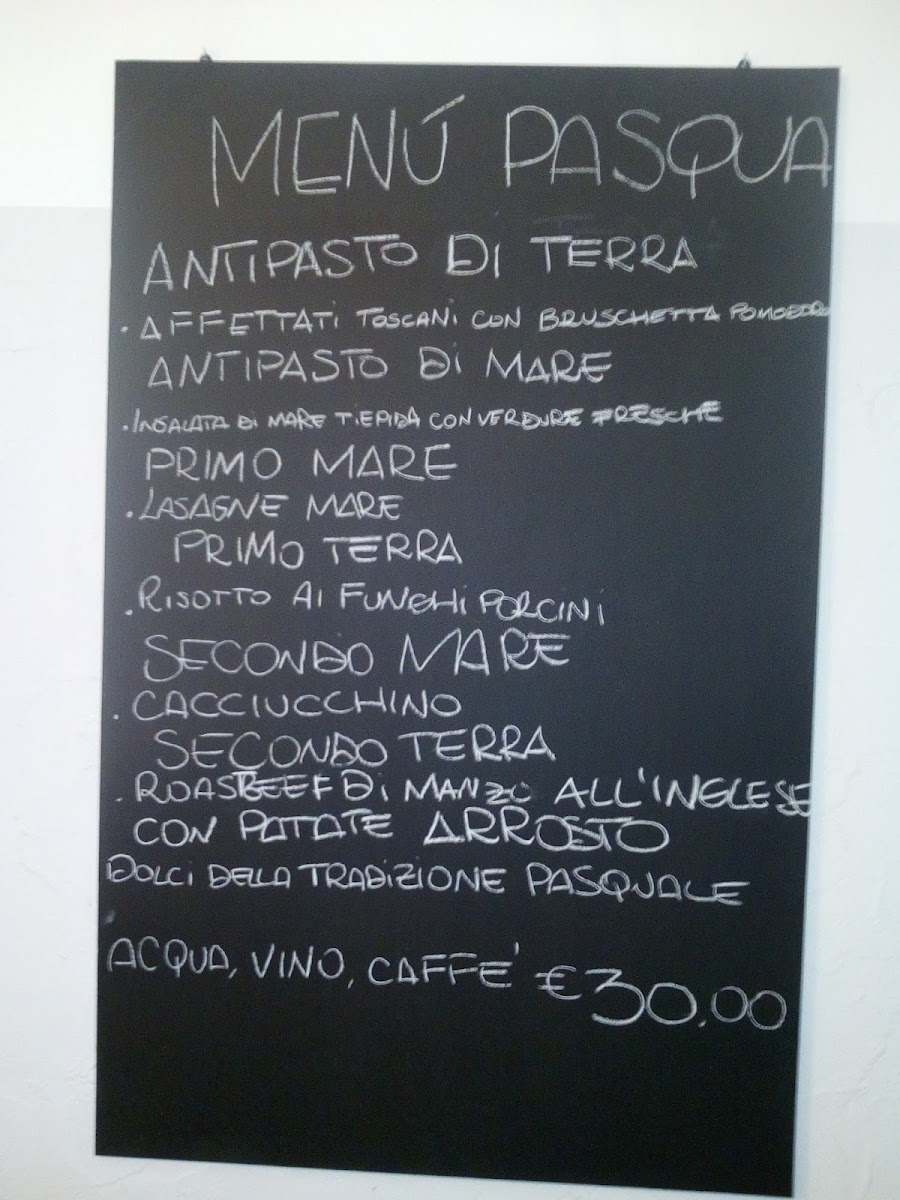 MENÚ PASQUA
ANTIPASTO DI TERRA
. AFFETTATI TOSCANI CON BRUSCHETTA POMODORO
ANTIPASTO DI MARE
. INSALATA DI MARE TIEPIDA CON VERDURE FRESCHE
PRIMO MARE
. LASAGNE MARE
PRIMO TERRA
. RISOTTO AI FUNGHI PORCINI
SECONDO MARE
. CACCIUCCHINO
SECONDO TERRA
. ROASTBEEF DI MANZO ALL'INGLESE
CON PATATE ARROSTO
DOLCI DELLA TRADIZIONE PASQUALE
ACQUA, VINO, CAFFE' €30,00